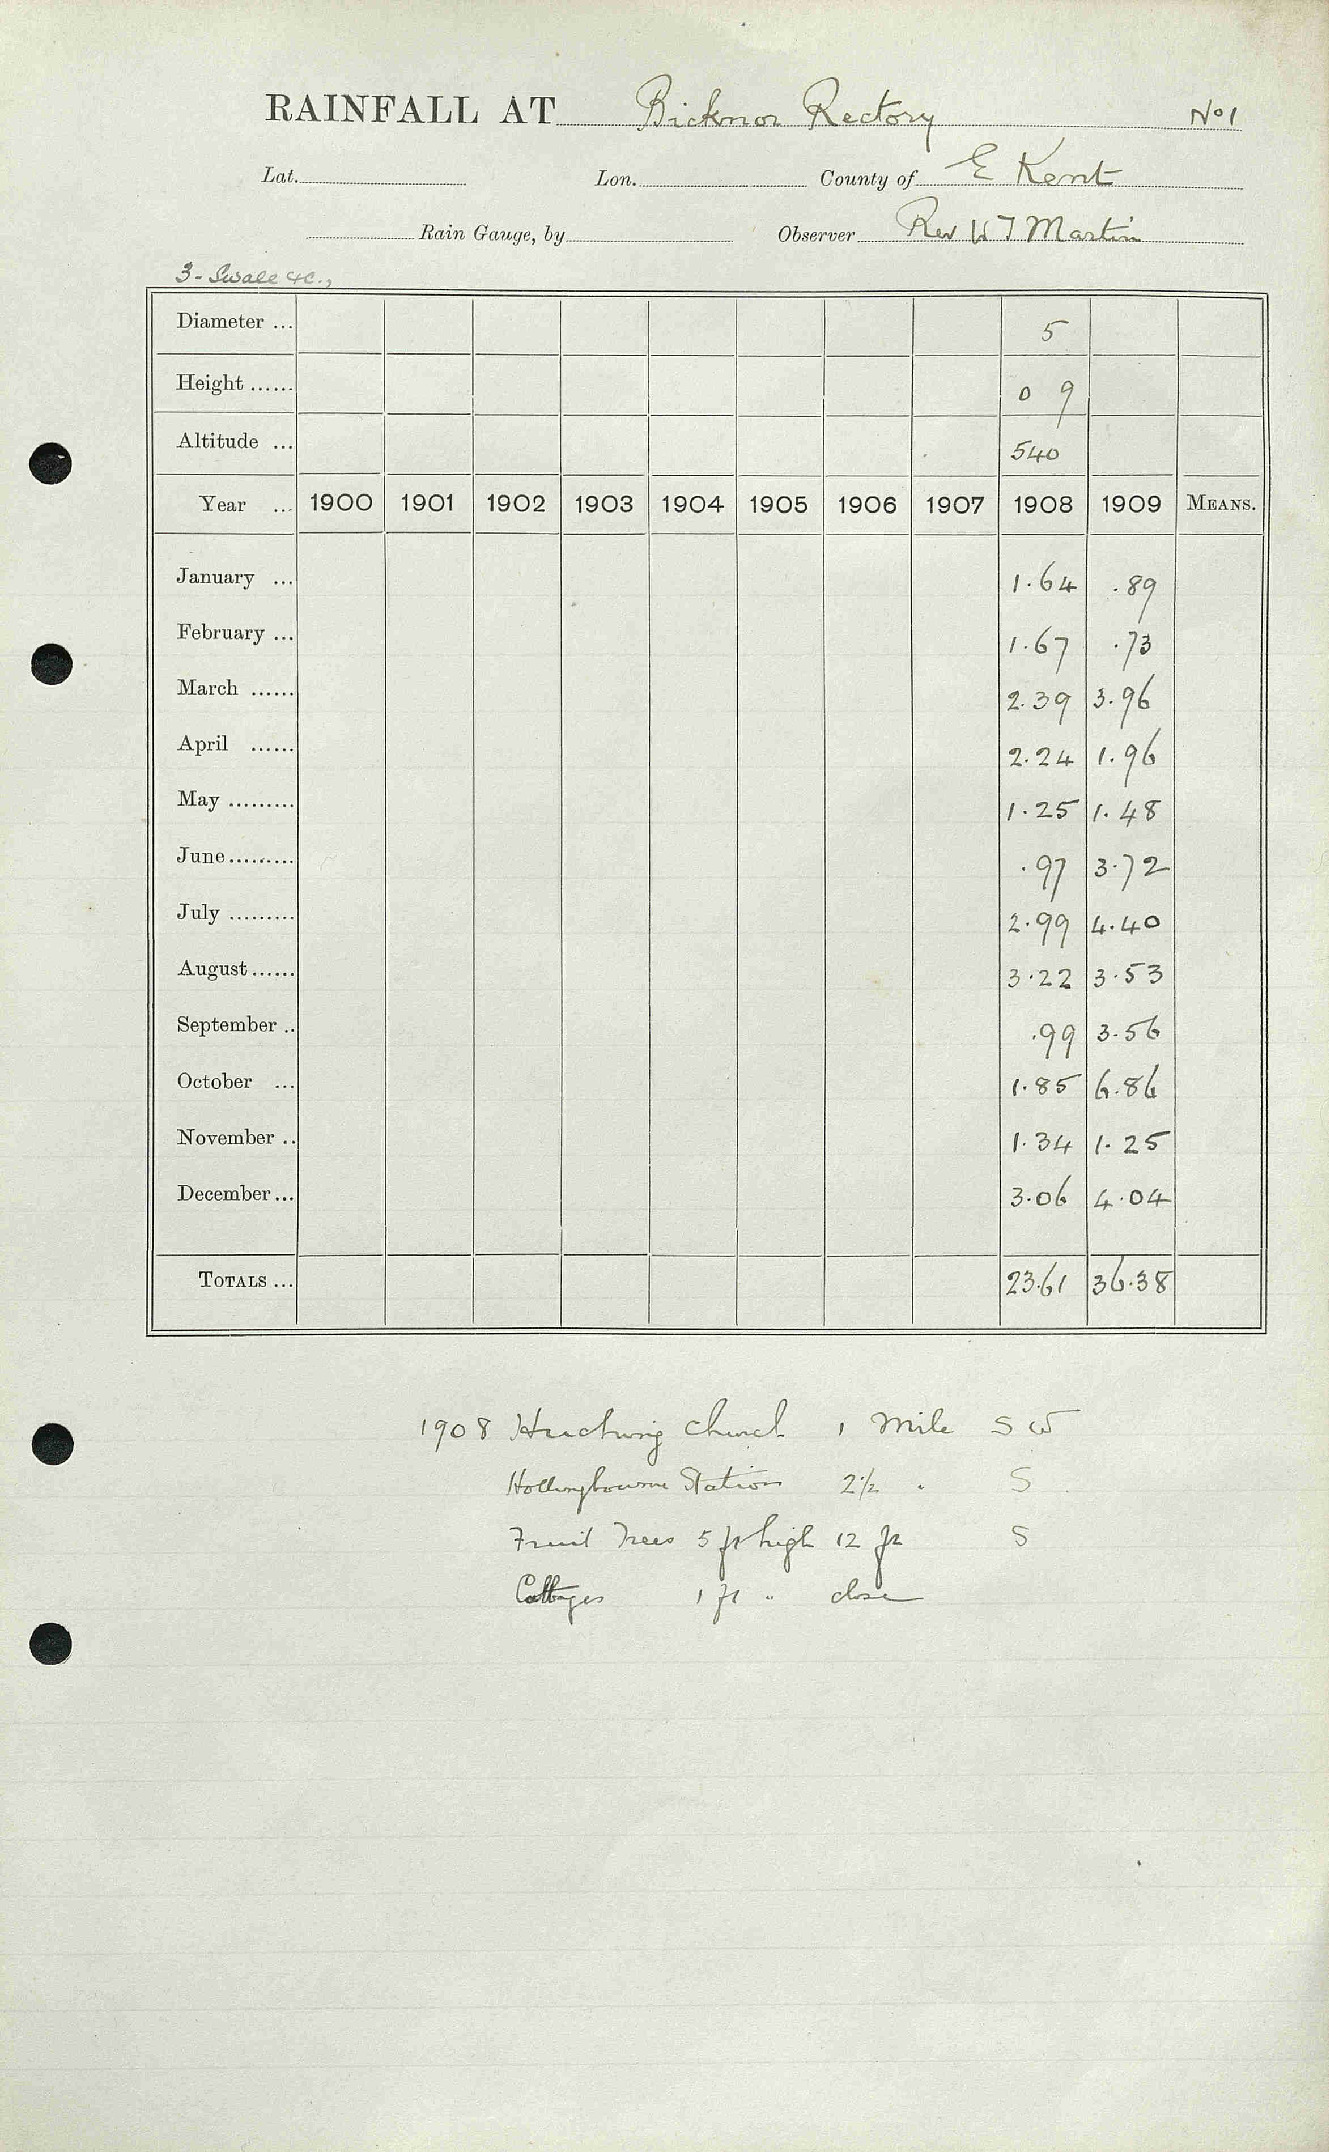 RAINFALL AT Bicknor Rectory No 1
Lat. Lon. County of E Kent
Rain Gauge, by Observer Rev W J Martin
3 - Swale &c.,
Diameter ... 5
Height ...... 0 9
Altitude ... 540
Year ... 1900 1901 1902 1903 1904 1905 1906 1907 1908 1909 MEANS.
January ... 1.64 .89
February ... 1.67 .73
March ...... 2.39 3.96
April ...... 2.24 1.96
May ......... 1.25 1.48
June ......... .97 3.72
July ......... 2.99 4.40
August ...... 3.22 3.53
September .. .99 3.56
October ... 1.85 6.86
November .. 1.34 1.25
December ... 3.06 4.04
TOTALS ... 23.61 36.38
1908 Hucking Church 1 Mile SW
Hollingbourne Station 2½ " S
Fruit Trees 5 ft high 12 ft S
Cottages 1 ft " close